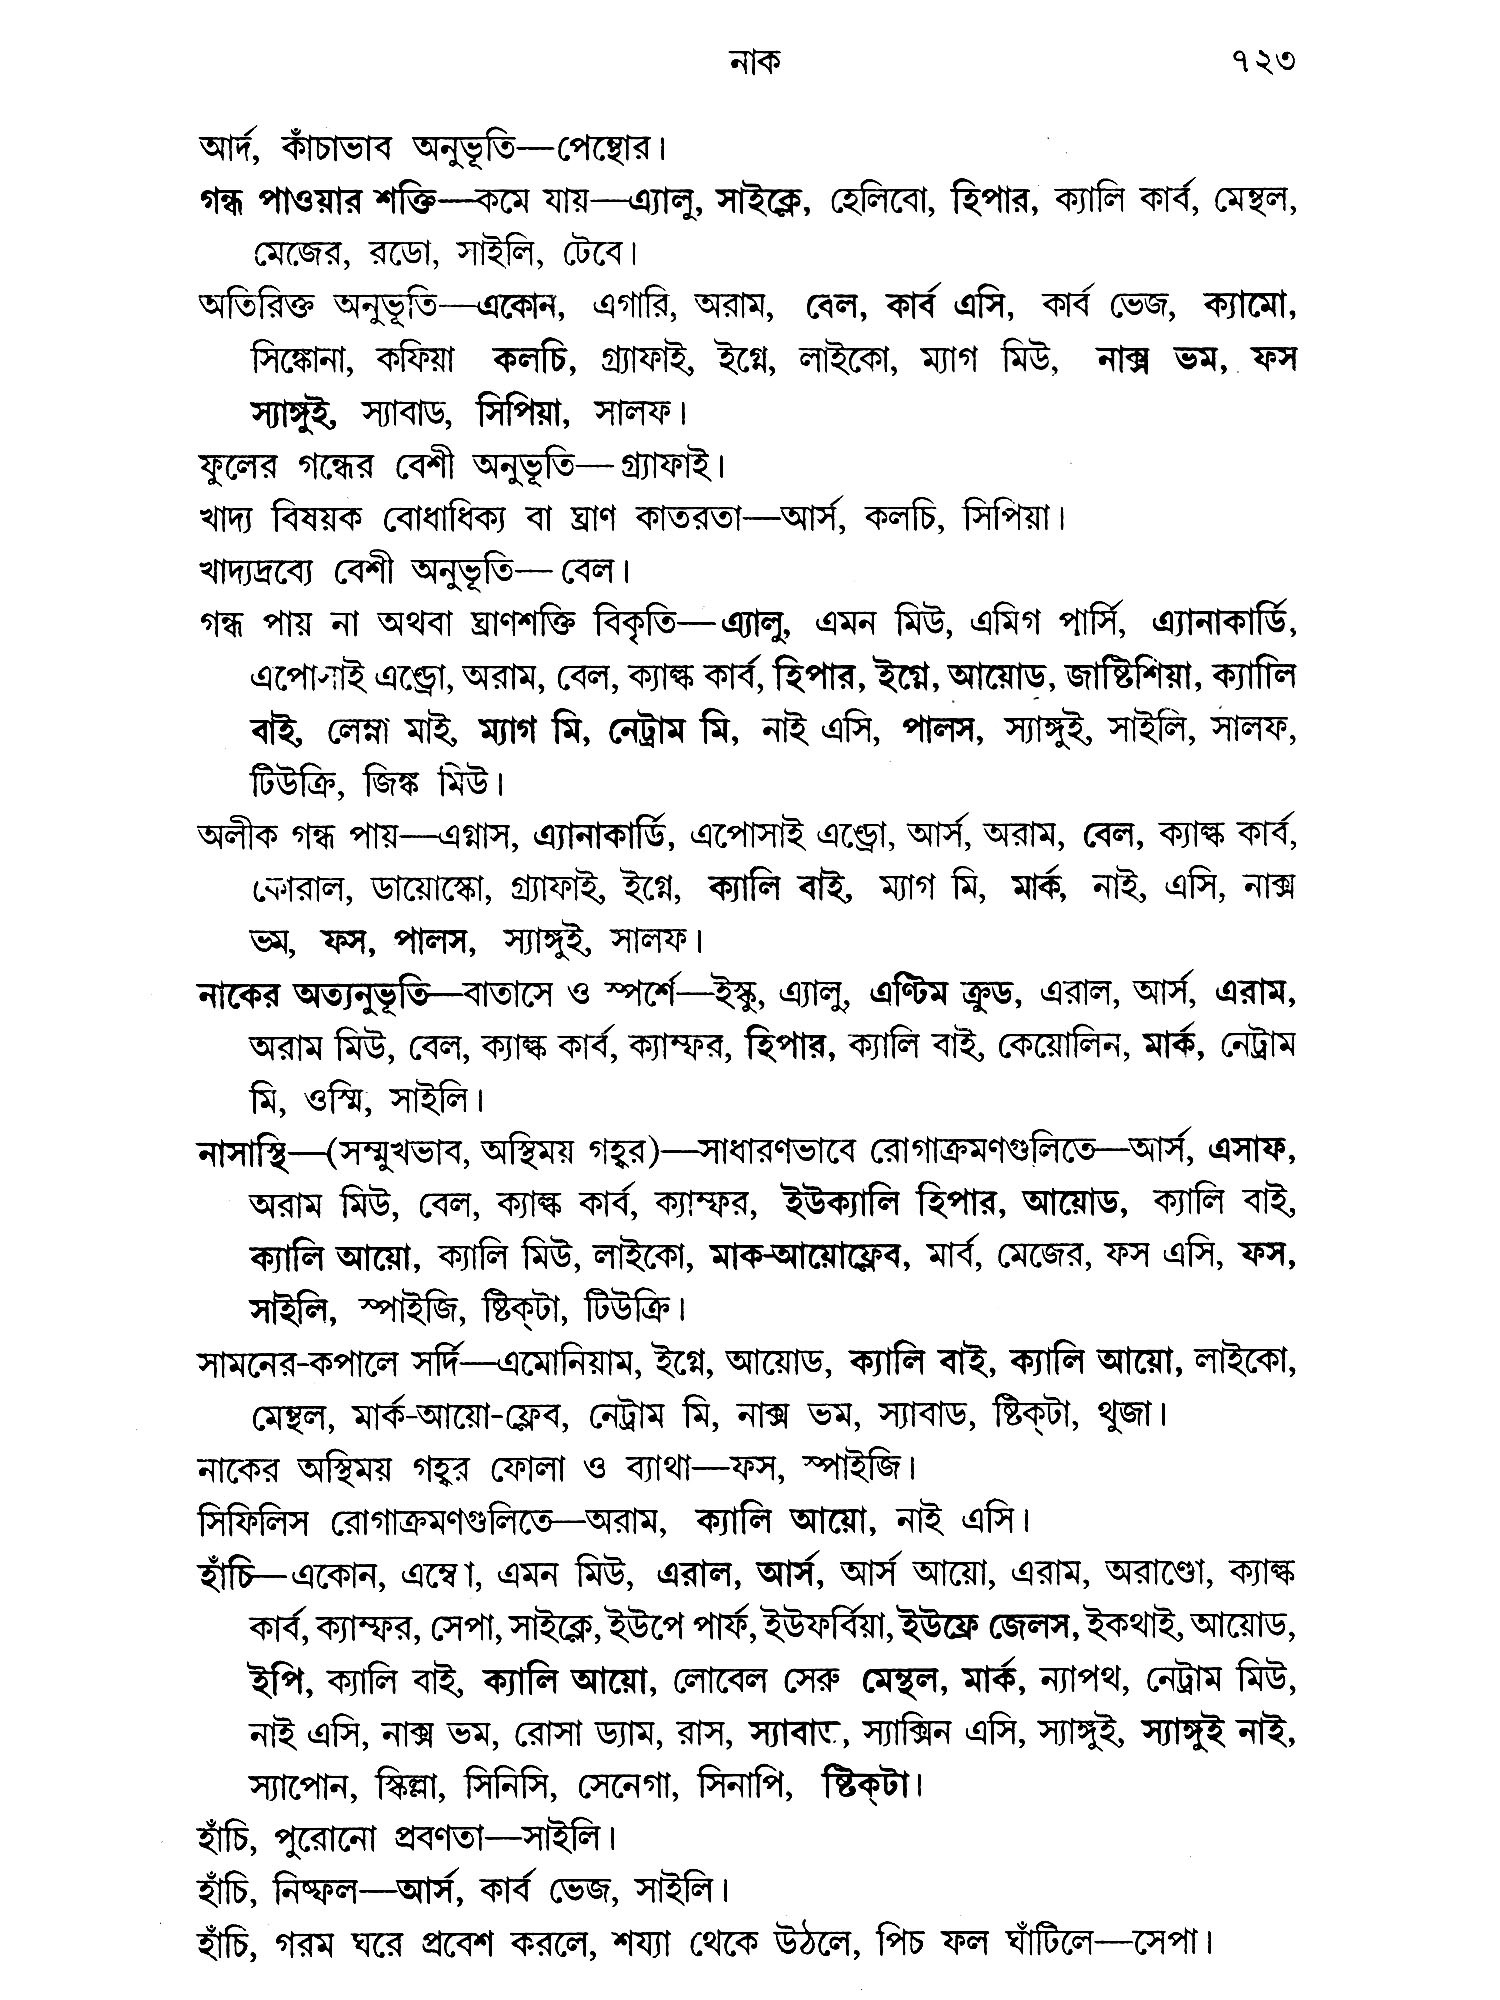 নাক ৭২৩
আর্দ, কাঁচাভাব অনুভূতি—পেন্থোর।
গন্ধ পাওয়ার শক্তি—কমে যায়—এ্যালু, সাইক্লে, হেলিবো, হিপার, ক্যালি কার্ব, মেন্থল,
মেজের, রডো, সাইলি, টেবে।
অতিরিক্ত অনুভূতি—একোন, এগারি, অরাম, বেল, কার্ব এসি, কার্ব ভেজ, ক্যামো,
সিঙ্কোনা, কফিয়া কলচি, গ্র্যাফাই, ইগ্নে, লাইকো, ম্যাগ মিউ, নাক্স ভম, ফস
স্যাঙ্গুই, স্যাবাড, সিপিয়া, সালফ।
ফুলের গন্ধের বেশী অনুভূতি—গ্র্যাফাই।
খাদ্য বিষয়ক বোধাধিক্য বা ঘ্রাণ কাতরতা—আর্স, কলচি, সিপিয়া।
খাদ্যদ্রব্যে বেশী অনুভূতি—বেল।
গন্ধ পায় না অথবা ঘ্রাণশক্তি বিকৃতি—এ্যালু, এমন মিউ, এমিগ পার্সি, এ্যানাকার্ডি,
এপোসাই এন্ড্রো, অরাম, বেল, ক্যাল্ক কার্ব, হিপার, ইগ্নে, আয়োড, জাষ্টিশিয়া, ক্যালি
বাই, লেম্না মাই, ম্যাগ মি, নেট্রাম মি, নাই এসি, পালস, স্যাঙ্গুই, সাইলি, সালফ,
টিউক্রি, জিঙ্ক মিউ।
অলীক গন্ধ পায়—এগ্নাস, এ্যানাকার্ডি, এপোসাই এন্ড্রো, আর্স, অরাম, বেল, ক্যাল্ক কার্ব,
কোরাল, ডায়োস্কো, গ্র্যাফাই, ইগ্নে, ক্যালি বাই, ম্যাগ মি, মার্ক, নাই, এসি, নাক্স
ভম, ফস, পালস, স্যাঙ্গুই, সালফ।
নাকের অত্যনুভূতি—বাতাসে ও স্পর্শে—ইস্কু, এ্যালু, এণ্টিম ক্রুড, এরাল, আর্স, এরাম,
অরাম মিউ, বেল, ক্যাল্ক কার্ব, ক্যাম্ফর, হিপার, ক্যালি বাই, কেয়োলিন, মার্ক, নেট্রাম
মি, ওস্মি, সাইলি।
নাসাস্থি—(সম্মুখভাব, অস্থিময় গহ্বর)—সাধারণভাবে রোগাক্রমণগুলিতে—আর্স, এসাফ,
অরাম মিউ, বেল, ক্যাল্ক কার্ব, ক্যাম্ফর, ইউক্যালি হিপার, আয়োড, ক্যালি বাই,
ক্যালি আয়ো, ক্যালি মিউ, লাইকো, মাক-আয়োফ্লেব, মার্ব, মেজের, ফস এসি, ফস,
সাইলি, স্পাইজি, ষ্টিক্‌টা, টিউক্রি।
সামনের-কপালে সর্দি—এমোনিয়াম, ইগ্নে, আয়োড, ক্যালি বাই, ক্যালি আয়ো, লাইকো,
মেন্থল, মার্ক-আয়ো-ফ্লেব, নেট্রাম মি, নাক্স ভম, স্যাবাড, ষ্টিক্‌টা, থুজা।
নাকের অস্থিময় গহ্বর ফোলা ও ব্যাথা—ফস, স্পাইজি।
সিফিলিস রোগাক্রমণগুলিতে—অরাম, ক্যালি আয়ো, নাই এসি।
হাঁচি—একোন, এম্বো, এমন মিউ, এরাল, আর্স, আর্স আয়ো, এরাম, অরাণ্ডো, ক্যাল্ক
কার্ব, ক্যাম্ফর, সেপা, সাইক্লে, ইউপে পার্ফ, ইউফর্বিয়া, ইউফ্রে জেলস, ইকথাই, আয়োড,
ইপি, ক্যালি বাই, ক্যালি আয়ো, লোবেল সেরু মেন্থল, মার্ক, ন্যাপথ, নেট্রাম মিউ,
নাই এসি, নাক্স ভম, রোসা ড্যাম, রাস, স্যাবাড, স্যাক্সিন এসি, স্যাঙ্গুই, স্যাঙ্গুই নাই,
স্যাপোন, স্কিল্লা, সিনিসি, সেনেগা, সিনাপি, ষ্টিক্‌টা।
হাঁচি, পুরোনো প্রবণতা—সাইলি।
হাঁচি, নিষ্ফল—আর্স, কার্ব ভেজ, সাইলি।
হাঁচি, গরম ঘরে প্রবেশ করলে, শয্যা থেকে উঠলে, পিচ ফল ঘাঁটিলে—সেপা।